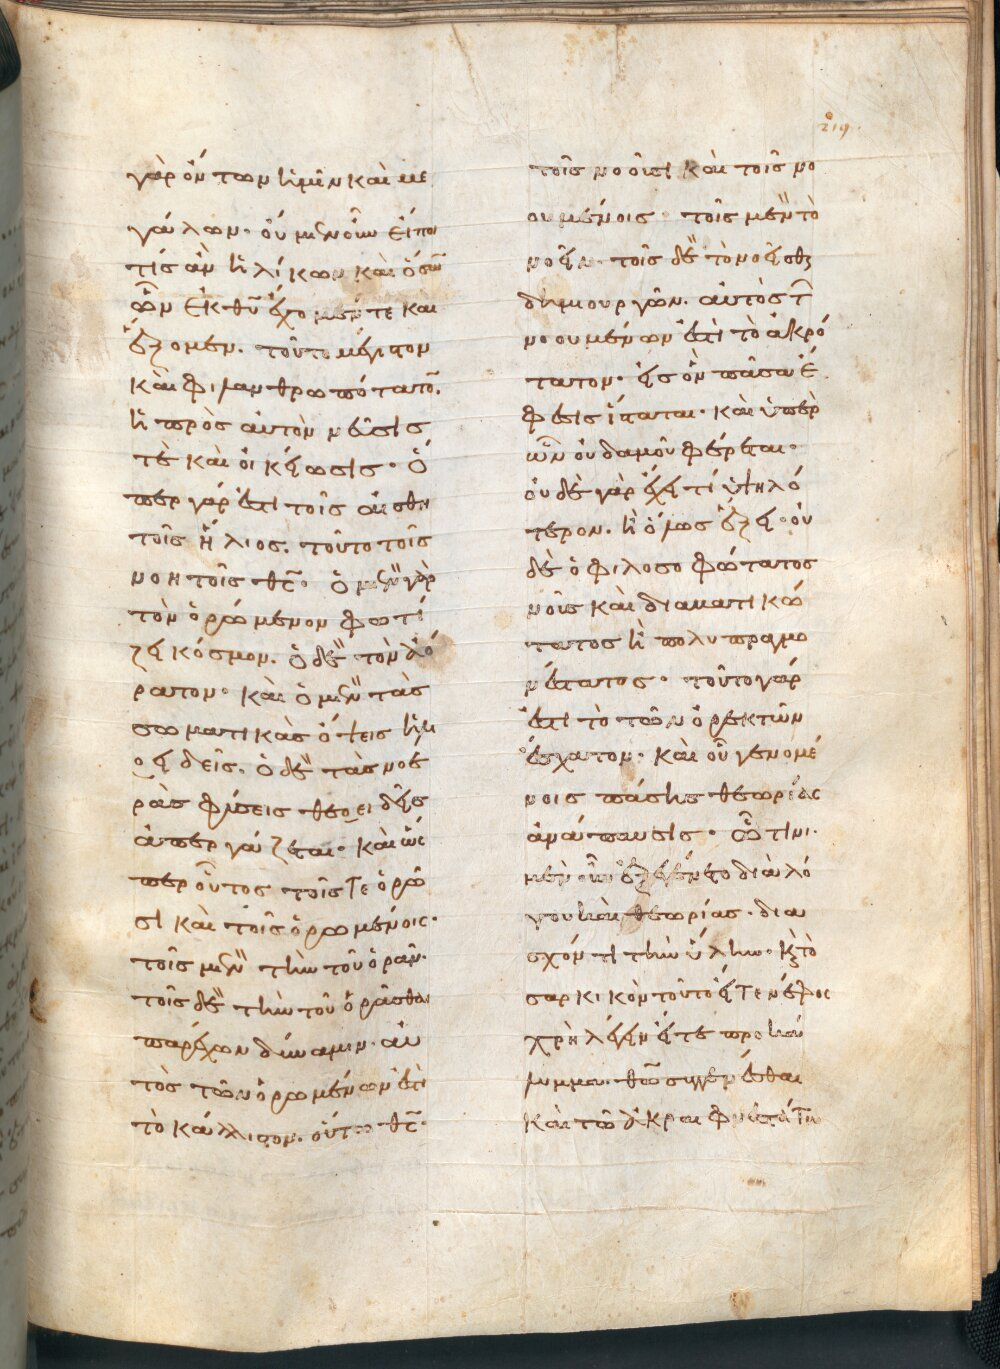 219
γὰρ ὄντων ἡμῖν καὶ με
γάλων· οὐ μὲν οὖν εἴποι
τίς ἂν ἡλίκων καὶ ὅσων
ὧν ἐκ θῦ ἔχομέν τε καὶ
ἕξομεν. τοῦτο μέγιστον
καὶ φιλανθρωπότατον.
ἡ πρὸς αὐτὸν νεῦσίς
τε καὶ οἰκείωσις· ὅ
περ γάρ ἐστι τοῖς αἰσθη
τοῖς ἥλιος. τοῦτο τοῖς
νοητοῖς θς̄· ὁ μὲν γὰρ
τὸν ὁρώμενον φωτί
ζει κόσμον. ὁ δὲ τὸν ἀό
ρατον· καὶ ὁ μὲν τὰς
σωματικὰς ὄψεις ἡλι
οειδεῖς. ὁ δὲ τὰς νοε
ρὰς φύσεις θεοειδεῖς
ἀπεργάζεται· καὶ ὥσ
περ οὗτος τοῖς τε ὁρῶ
σι καὶ τοῖς ὁρωμένοις·
τοῖς μὲν τὴν τοῦ ὁρᾶν.
τοῖς δὲ τὴν τοῦ ὁρᾶσθαι
παρέχων δύναμιν. αὐ
τὸς τῶν ὁρωμένων ἐστὶ
τὸ κάλλιστον. οὕτω θς̄·
τοῖς νοοῦσι καὶ τοῖς νο
ουμένοις· τοῖς μὲν τὸ
νοεῖν. τοῖς δὲ τὸ νοεῖσθαι
δημιουργῶν. αὐτὸς τῶν
νοουμένων ἐστὶ τὸ ἀκρό
τατον· εἰς ὃν πᾶσα ἔ
φεσις ἵσταται· καὶ ὑπὲρ
ὃν οὐδαμοῦ φέρεται·
οὐδὲ γὰρ ἔχει τί ὑψηλό
τερον. ἢ ὅλως ἕξει· οὐ
δὲ ὁ φιλοσοφώτατος
νοῦς καὶ διαβατικώ
τατος ἢ πολυπραγμο
νέστατος· τοῦτο γάρ
ἐστι τὸ τῶν ὀρεκτῶν
ἔσχατον· καὶ οὗ γενομέ
νοις πάσης θεωρίας
ἀνάπαυσις· ᾧ τινι
μὲν οὖν ἐξεγένετο διὰ λό
γου καὶ θεωρίας· δια
σχόντι τὴν ὕλην· καὶ τὸ
σαρκικὸν τοῦτο εἴτε νέφος
χρὴ λέγειν εἴτε προκά
λυμμα· θῶ συγγενέσθαι
καὶ τῶ ἀκραιφνεστάτω